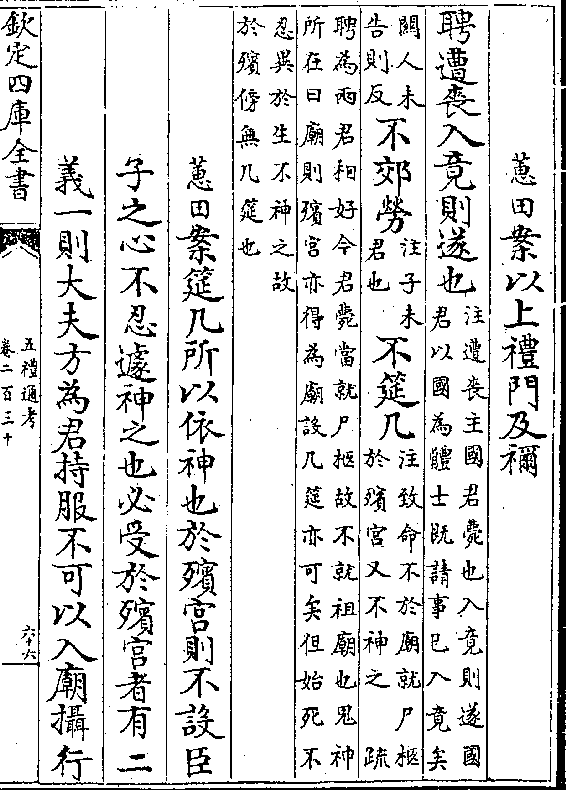 蕙田案以上禮門及禰
聘遭喪入竟則遂也注遭喪主國君薨也入竟則遂國
君以國為體士既請事已入竟矣
關人未
告則反不郊勞注子未
君也不筵几注致命不於廟就尸柩
於殯宮又不神之 疏
聘為兩君相好今君薨當就尸柩故不就祖廟也鬼神
所在曰廟則殯宮亦得為廟設几筵亦可矣但始死不
忍異於生不神之故
於殯傍無几筵也
蕙田案筵几所以依神也於殯宮則不設臣
子之心不忍遽神之也必受於殯宮者有二
義一則大夫方為君持服不可以入廟攝行
欽定四庫全書
五禮通考
卷二百三十
六十六